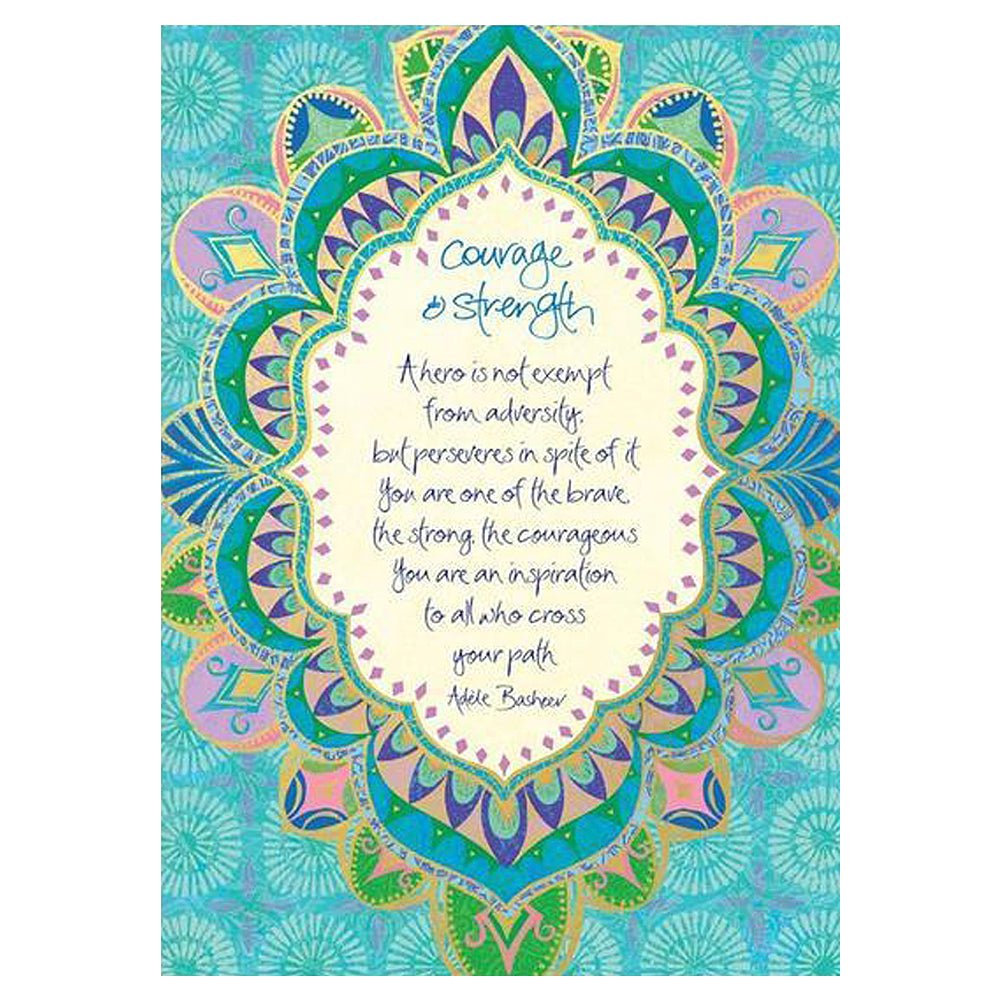 Courage
& strength
A hero is not exempt
from adversity,
but perseveres in spite of it
You are one of the brave,
the strong, the courageous
You are an inspiration
to all who cross
your path
Adèle Basheer